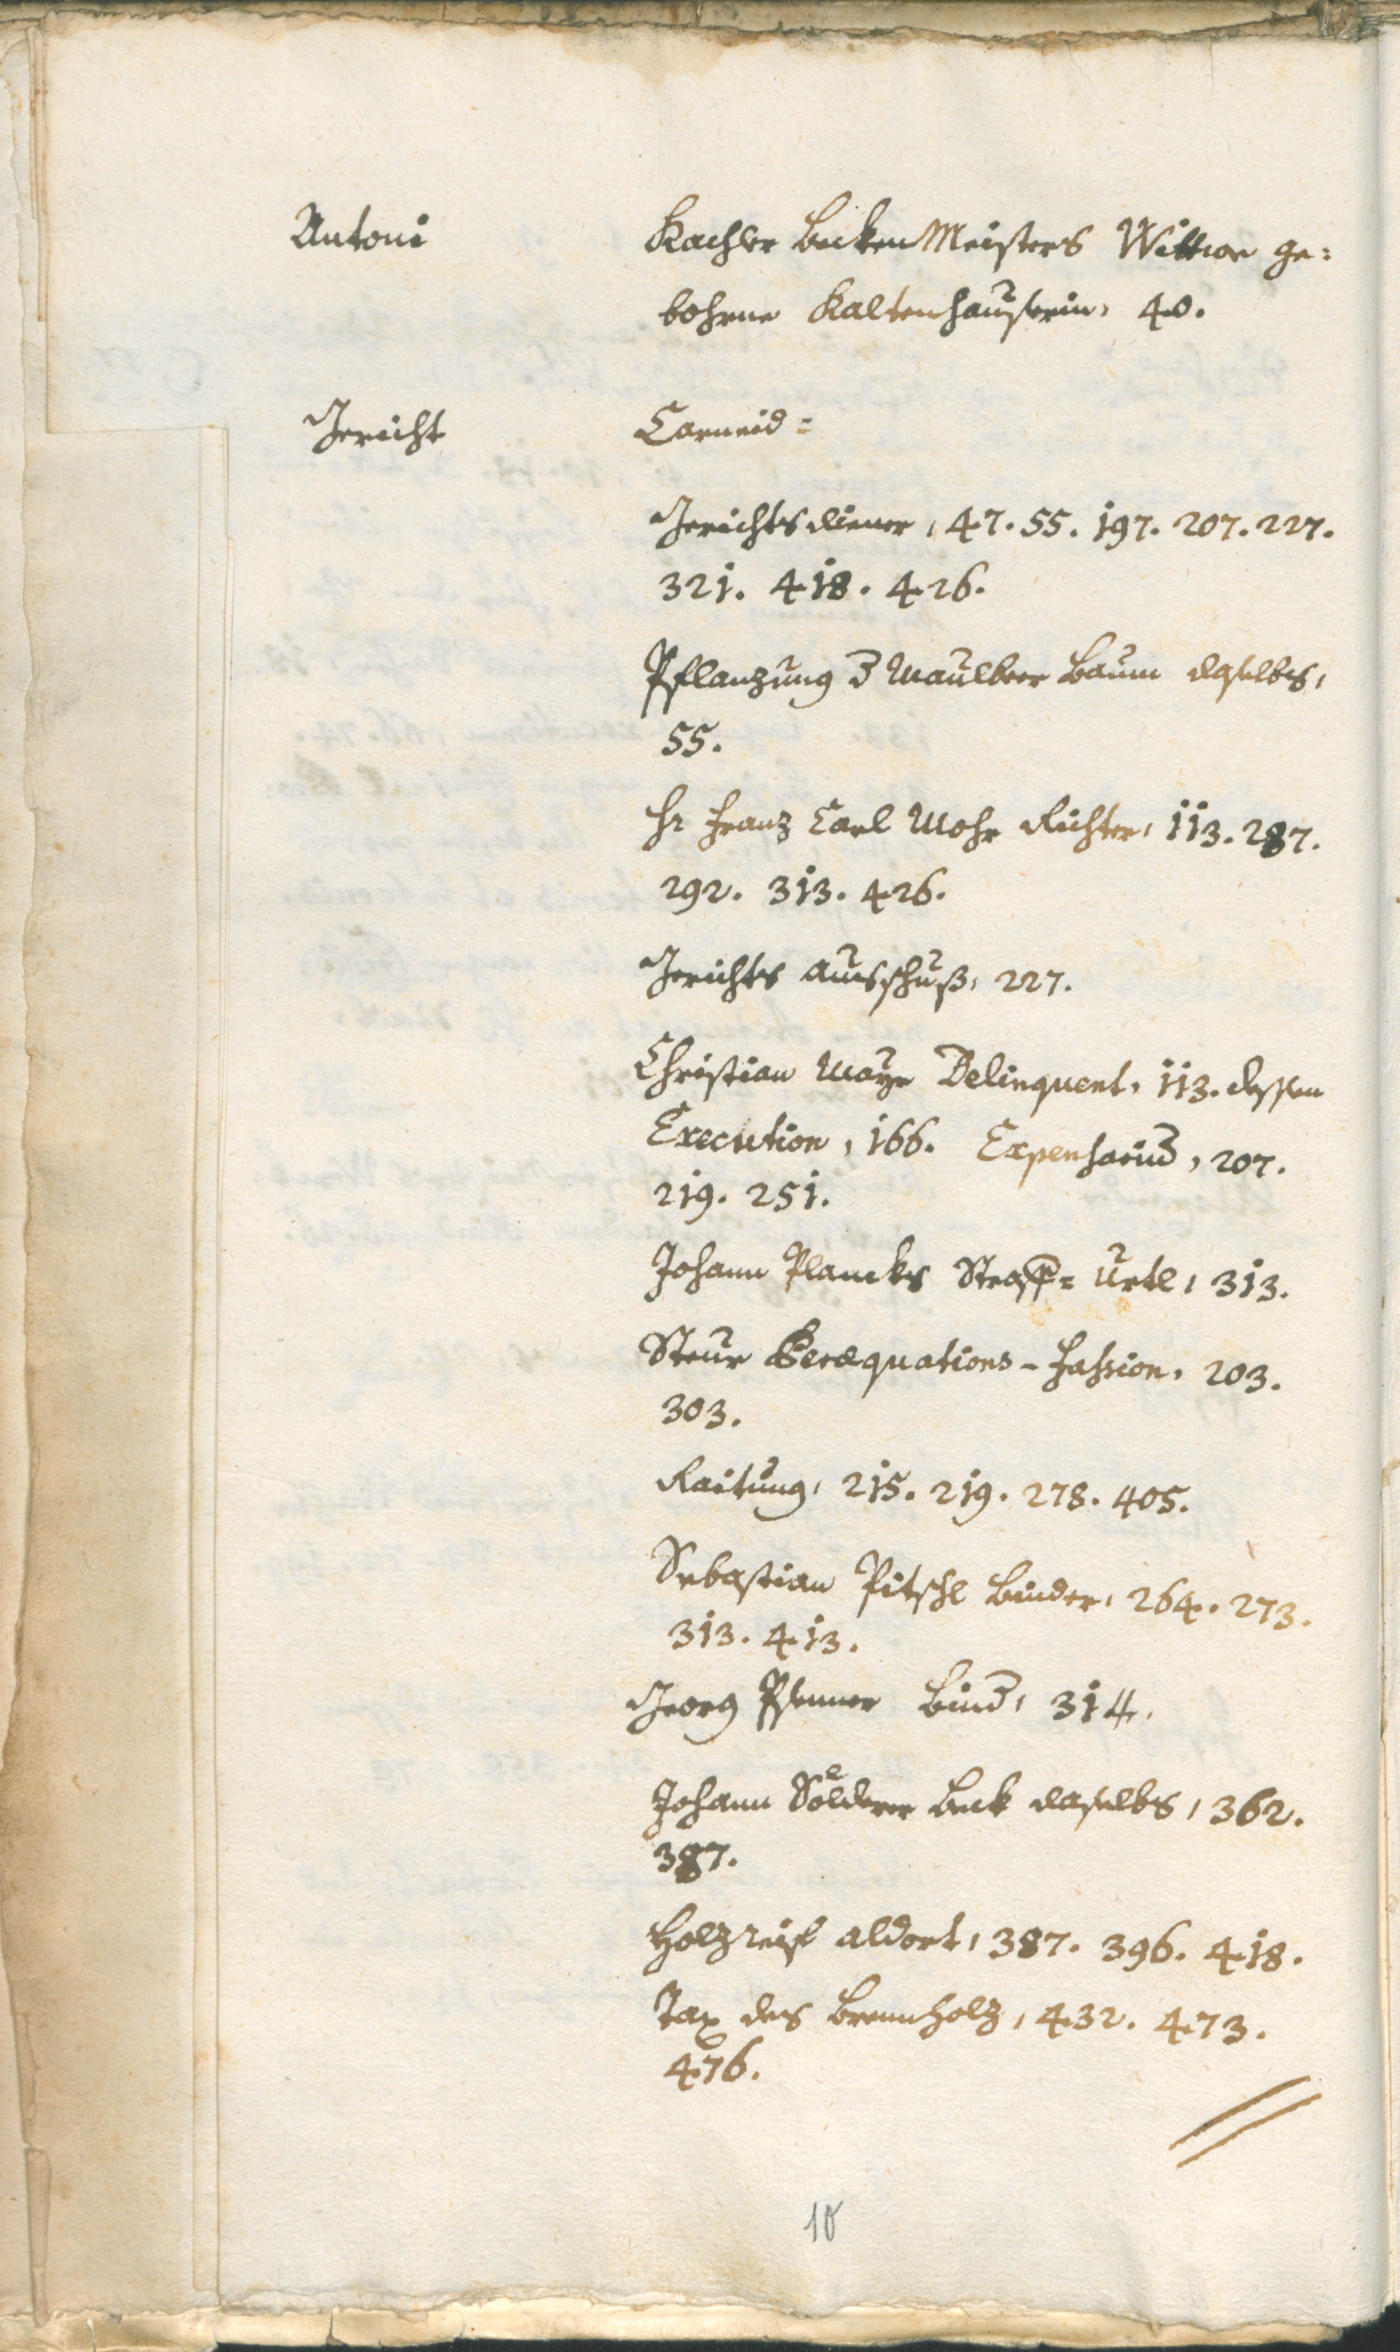 Antoni Kachler Becken Meisters Wittwe ge=
bohrne Kaltenhauserin, 40.
Gericht Carneid=
Gerichtsdiener, 47. 55. 197. 207. 227.
321. 418. 426.
Pflanzung d Maulbeer Baum daselbs,
55.
Hr Franz Carl Mohr Richter, 113. 287.
292. 313. 426.
Gerichts Ausschuß, 227.
Christian Mayr Delinquent, 113. dessen
Execution, 166. Expensarium, 207.
219. 251.
Johann Plancks Straff= Urtl, 313.
Steur Peræquations-Fassion, 203.
303.
Raitung, 215. 219. 278. 405.
Sebastian Pitschl Binder, 264. 273.
313. 413.
Georg Psenner Bind, 314.
Johann Sölderer Beck daselbs, 362.
387.
Holzreif aldort, 387. 396. 418.
Tax des Brennholz, 432. 473.
476.
10